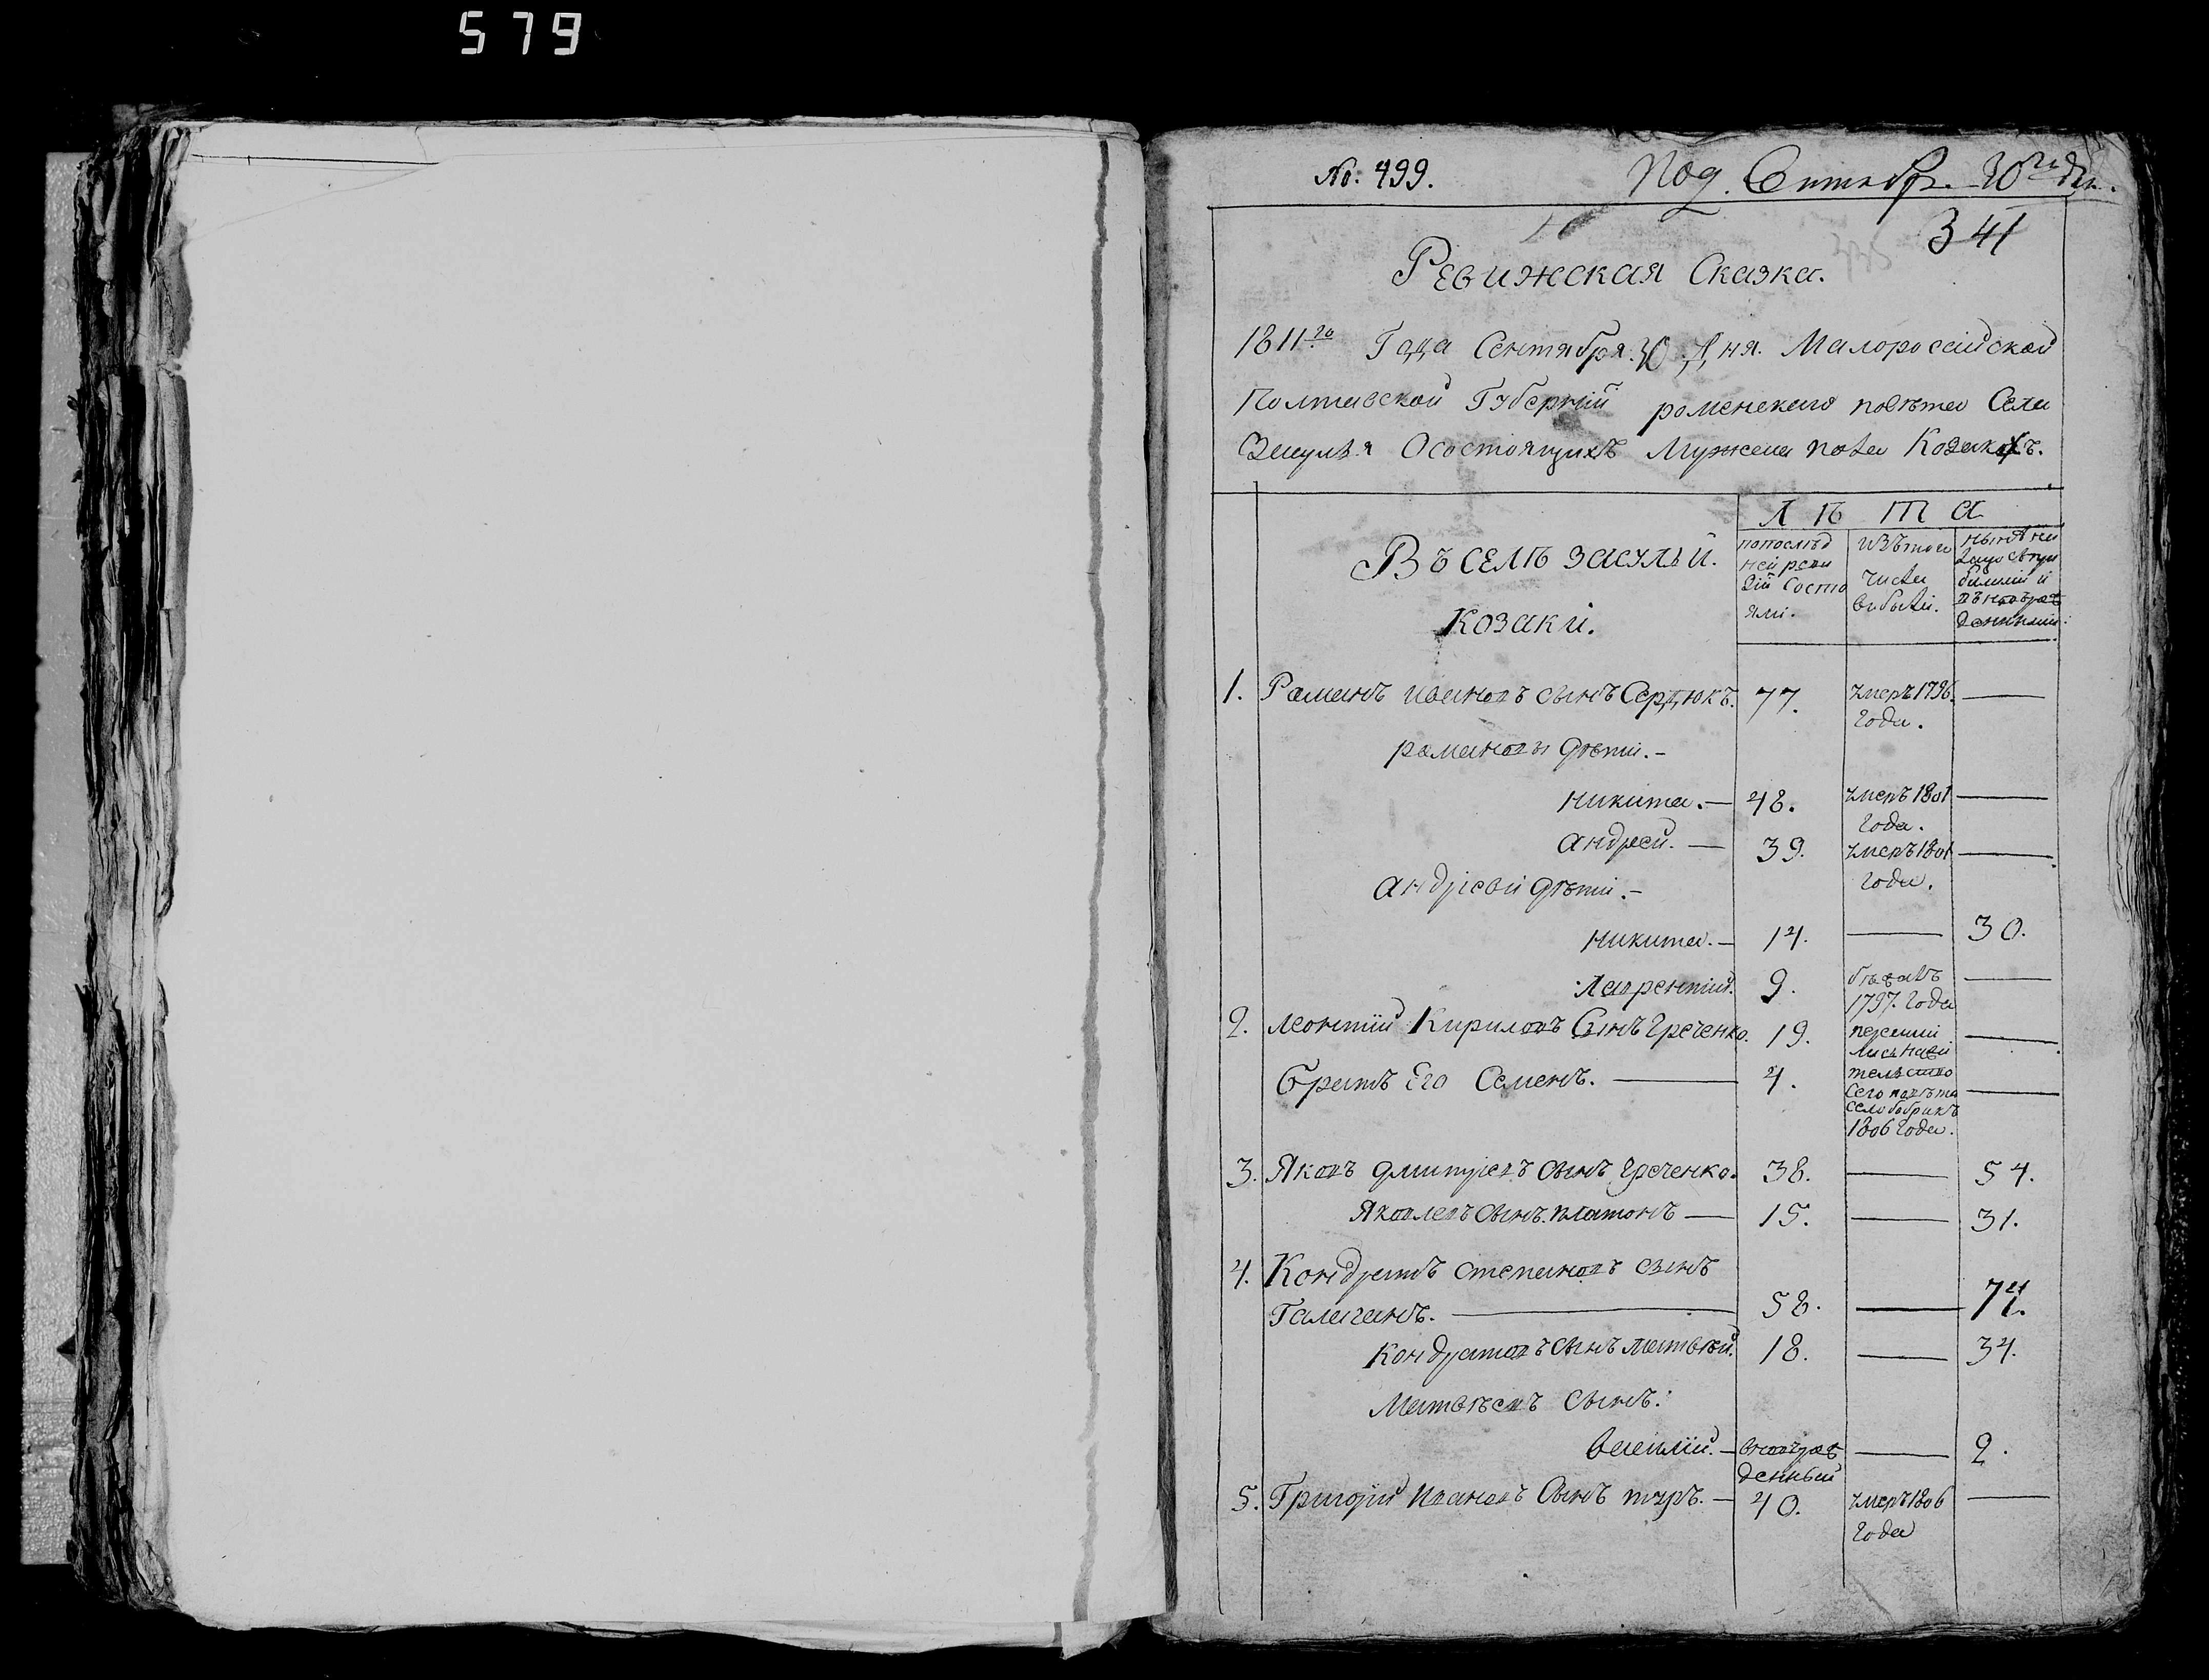 579
№. 499. Под. Сентябр. 30го дн.
341
Ревижская Сказка.
1811го Года Сентября 30 Дня. Малоросийской
Полтавской Губернїй роменского повѣта Села
Засулья О состоящихъ Мужеска пола Козакахъ.
Лѣта
Въ селѣ засульи.
Козакі.
попослѣд ней реви зїй состо ялі.
изъ того числа выбылі.
1. Раманъ ивановъ сынъ Сердюкъ. 77. умеръ 1796. года. —
рамановы дѣти. –
никита. — 48. умеръ 1801 года. —
андрей. — 39. умеръ 1801 года. —
андрїевы дѣти. –
никита. – 14. — 30.
Лаврентий. 9. бѣжалъ 1797. года —
2. леонтий Кириловъ Сынъ Греченко. 19. —
братъ Его Семенъ. — 4. сего повѣта село бобрикъ 1806 года. —
3. Яковъ дмитриевъ сынъ Греченко. 38. — 54.
Яковлевъ сынъ. платонъ — 15. — 31.
4. Кондратъ степановъ сынъ
Галаганъ. — 58. — 74.
Кондратовъ сынъ матвѣй. 18. — 34.
Матвѣевъ сынъ:
василїй. — вновьрож денный — 2.
5. Григорїй Ивановъ Сынъ туръ. — 40. умеръ 1806 года —